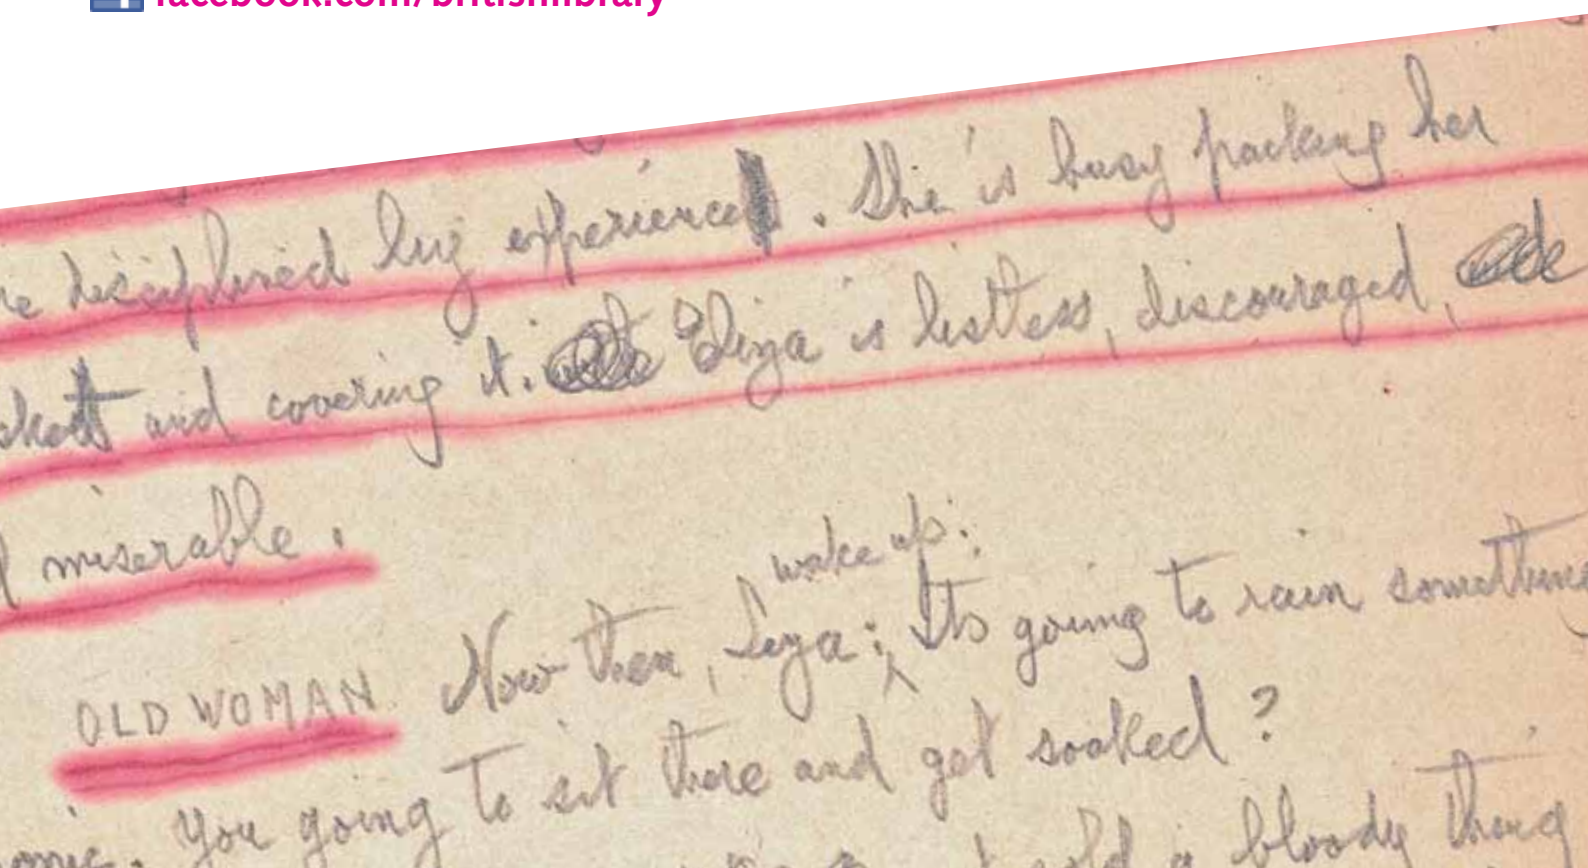 facebook.com/britishlibrary
disciplined by experience. She is busy packing her
and covering it. Eliza is listless, discouraged,
miserable.
wake up:
OLD WOMAN. Now then, Liza: Its going to rain something
You going to sit there and get soaked?
a bloody thing